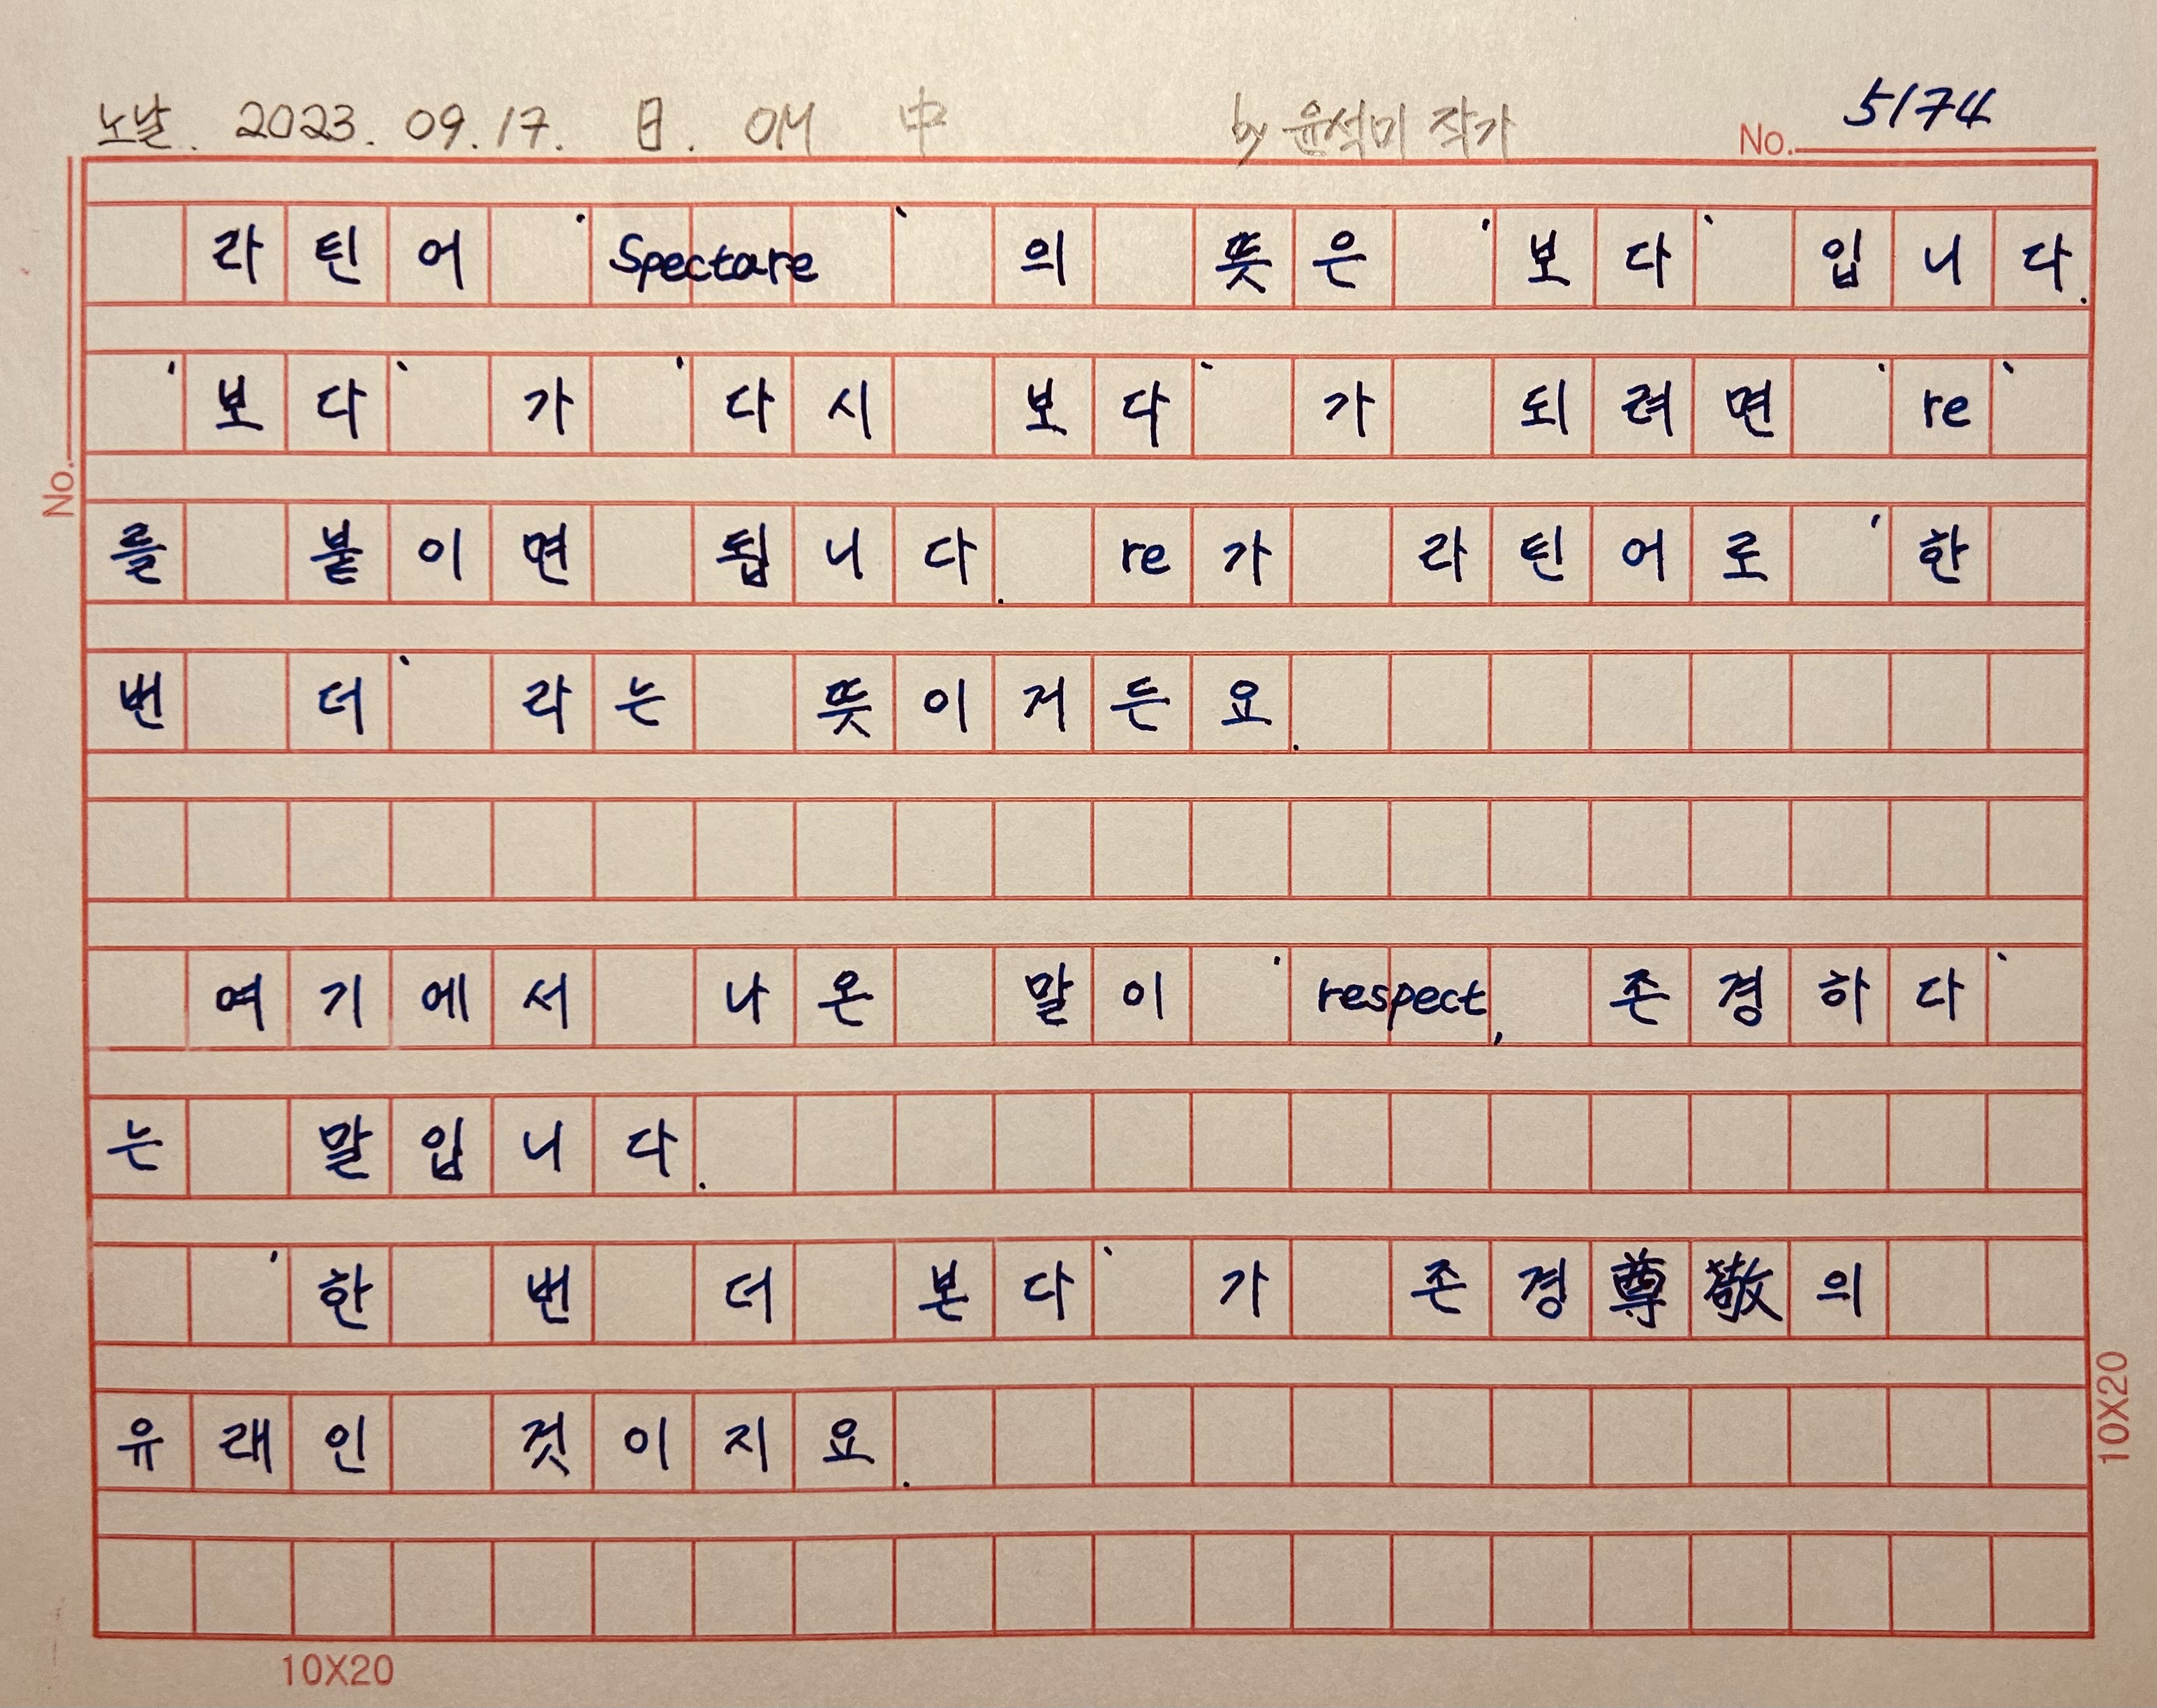 노날. 2023. 09. 17. 日. 0H 中 by 윤석미 작가 No. 5174
라틴어 'Spectare'의 뜻은 '보다'입니다.
'보다'가 '다시 보다'가 되려면 're'
를 붙이면 됩니다. re가 라틴어로 '한
번 더'라는 뜻이거든요.
여기에서 나온 말이 'respect, 존경하다'
는 말입니다.
'한 번 더 본다'가 존경尊敬의
유래인 것이지요.
No.
10X20
10X20